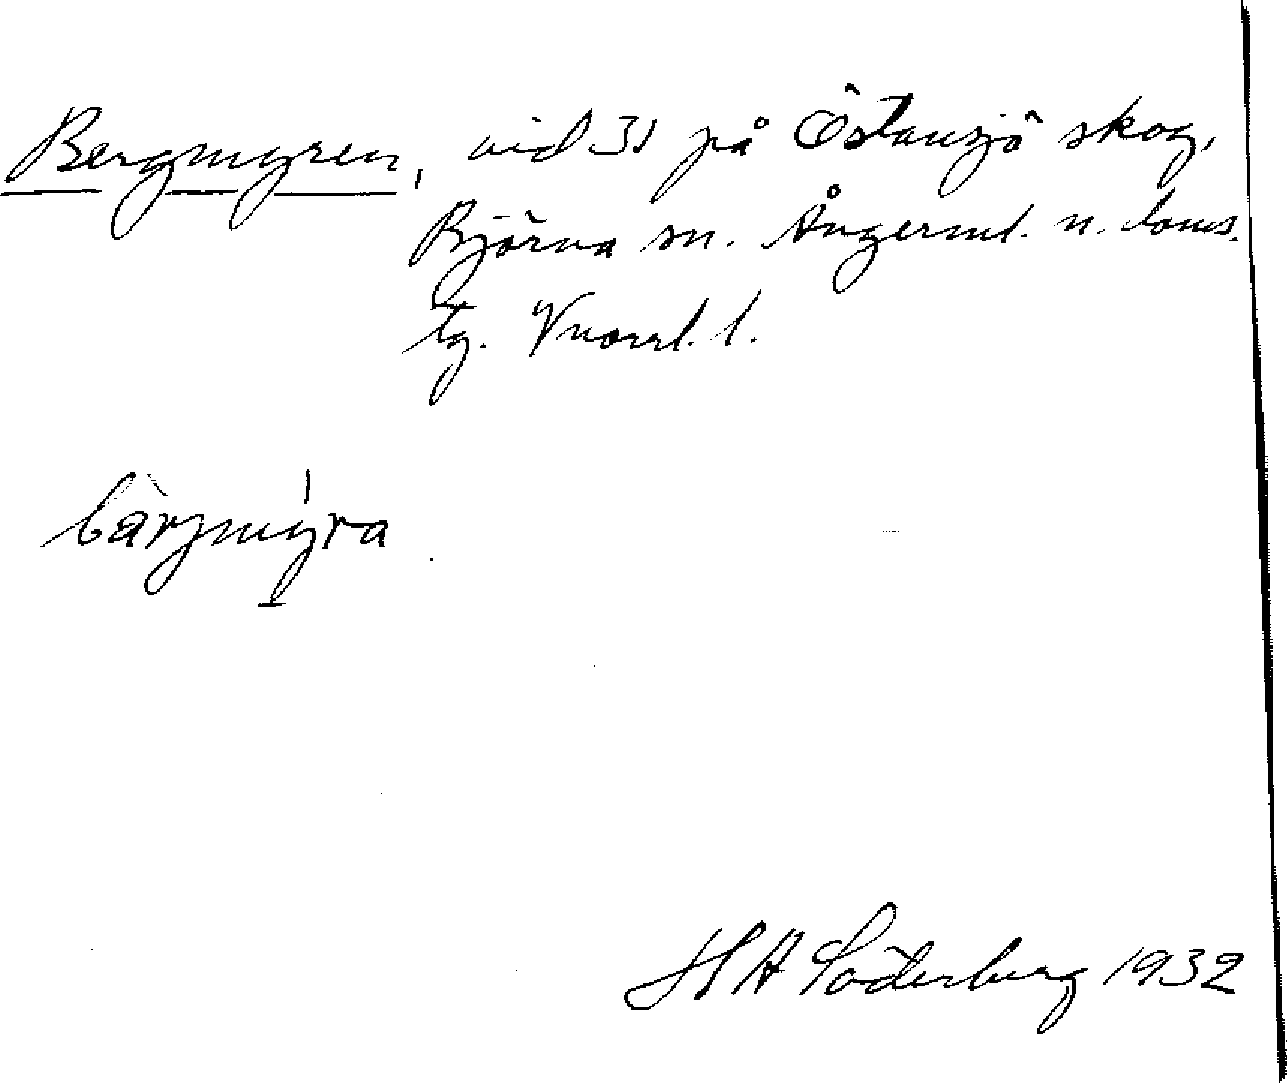 Bergmyren, vid 31 på Östansjö skog,
Björna sn. Ångerml. n. doms.
tg. Vnorrl. l.
bärjmyra
H A Söderberg 1932